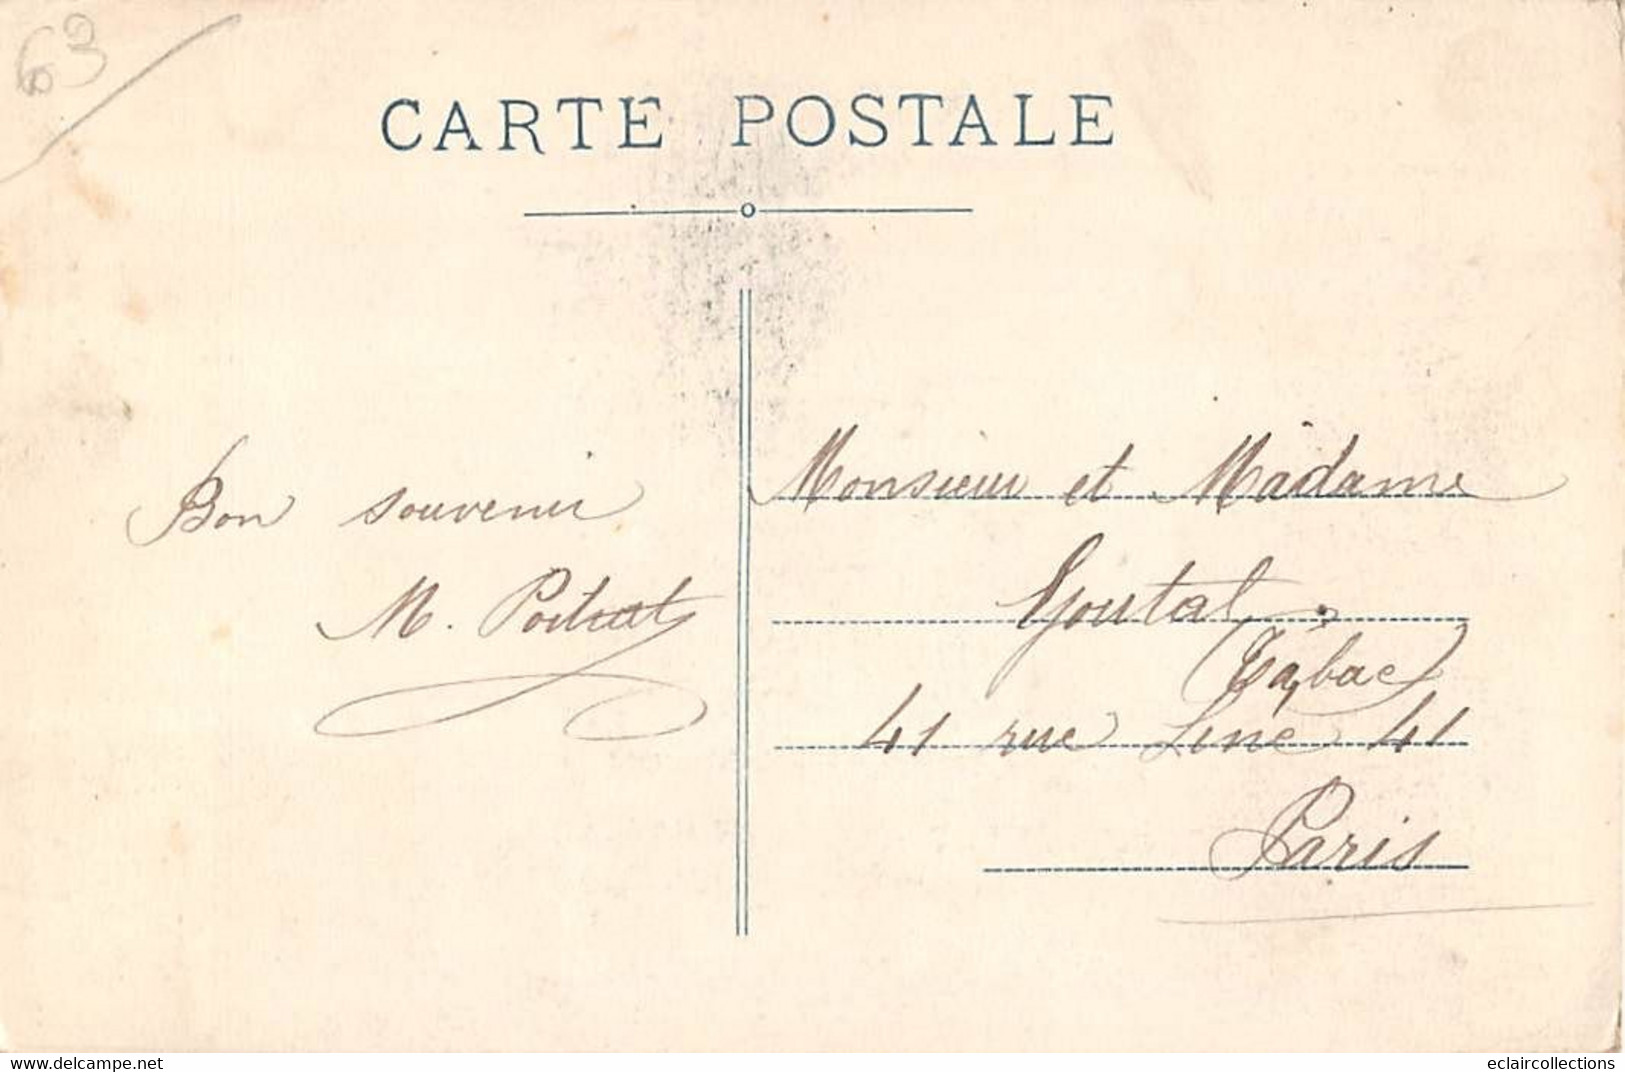 63
CARTE POSTALE
Bon souvenir
M. Poitrat
Monsieur et Madame
Goutal
Tabac
41 rue Line 41
Paris
www.delcampe.net
eclaircollections